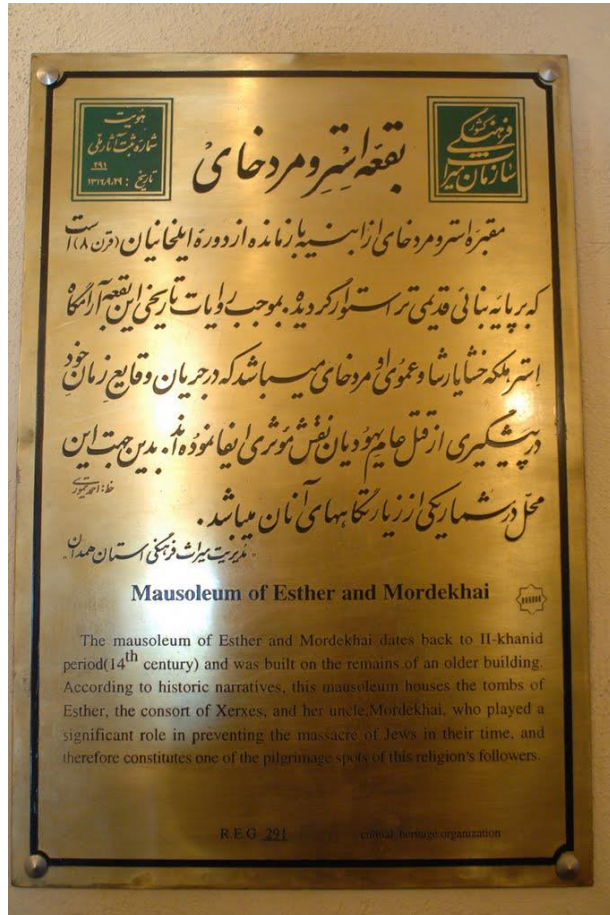 هویت
شماره ثبت آثار ملی
۲۹۱
تاریخ : ۱۳۱۶،۹،۲۹
سازمان میراث فرهنگی کشور
بقعه اِستِر و مردخای
مقبره استر و مردخای از ابنیه بازمانده از دوره ایلخانیان (قرن ۸) است
که بر پایه بنائی قدیمی تر استوار گردیده. بموجب روایات تاریخی این بقعه آرامگاه
اِستر ملکه خشایارشا و عموُی او مردخای میباشد که در جریان وقایع زمان خود
در پیشگیری از قتل عام یهودیان نقش مؤثری ایفا نموده اند. بدین جهت این
محل در شمار یکی از زیارتگاههای آنان میباشد.
خط: احمد تیموری
- مدیریت میراث فرهنگی استان همدان -
Mausoleum of Esther and Mordekhai
The mausoleum of Esther and Mordekhai dates back to Il-khanid
period(14th century) and was built on the remains of an older building.
According to historic narratives, this mausoleum houses the tombs of
Esther, the consort of Xerxes, and her uncle,Mordekhai, who played a
significant role in preventing the massacre of Jews in their time, and
therefore constitutes one of the pilgrimage spots of this religion's followers.
R.E.G 291 cultural heritage organization